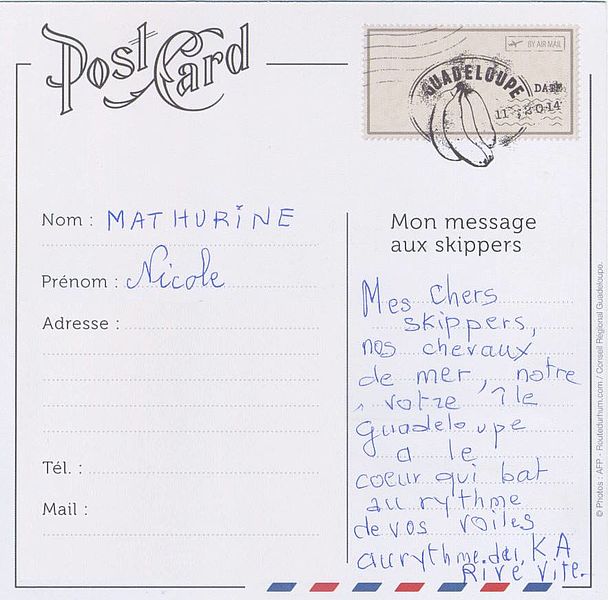 Post Card
BY AIR MAIL
GUADELOUPE
DATE
11, 2014
Nom : MATHURINE
Prénom : Nicole
Adresse :
Tél. :
Mail :
Mon message
aux skippers
Mes chers
skippers,
nos chevaux
de mer, notre
votre île
Guadeloupe
a le
coeur qui bat
au rythme
de vos voiles
au rythme du KA
Rivé vite.
© Photos : AFP - Routedurhum.com / Conseil Régional Guadeloupe.